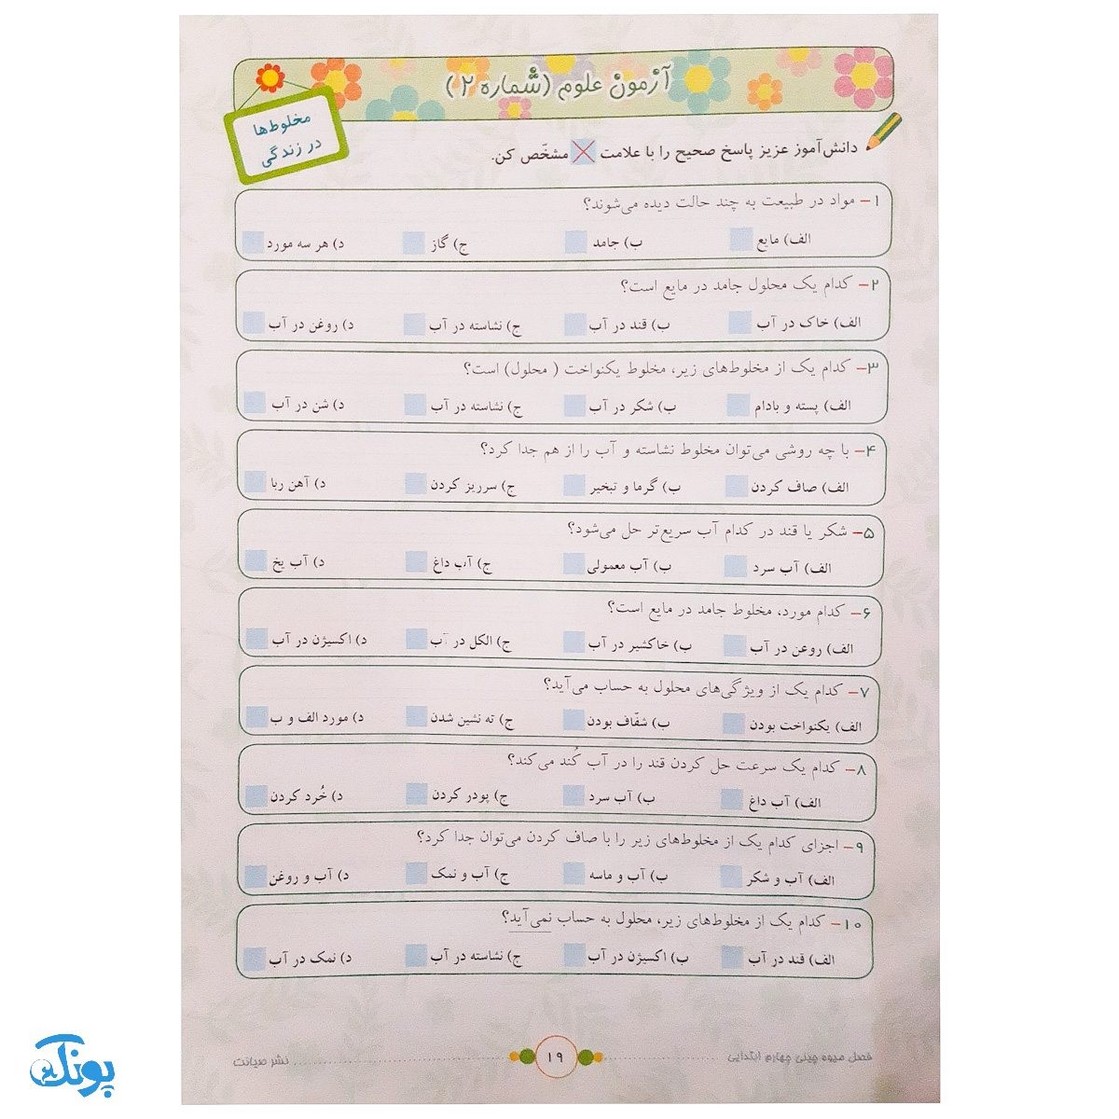 آزمون علوم (شماره ۲)
مخلوط‌ها
در زندگی
دانش‌آموز عزیز پاسخ صحیح را با علامت مشخّص کن.
۱– مواد در طبیعت به چند حالت دیده می‌شوند؟
الف) مایع ب) جامد ج) گاز د) هر سه مورد
۲– کدام یک محلول جامد در مایع است؟
الف) خاک در آب ب) قند در آب ج) نشاسته در آب د) روغن در آب
۳– کدام یک از مخلوط‌های زیر، مخلوط یکنواخت ( محلول) است؟
الف) پسته و بادام ب) شکر در آب ج) نشاسته در آب د) شن در آب
۴– با چه روشی می‌توان مخلوط نشاسته و آب را از هم جدا کرد؟
الف) صاف کردن ب) گرما و تبخیر ج) سرریز کردن د) آهن ربا
۵– شکر یا قند در کدام آب سریع‌تر حل می‌شود؟
الف) آب سرد ب) آب معمولی ج) آب داغ د) آب یخ
۶– کدام مورد، مخلوط جامد در مایع است؟
الف) روغن در آب ب) خاکشیر در آب ج) الکل در آب د) اکسیژن در آب
۷– کدام یک از ویژگی‌های محلول به حساب می‌آید؟
الف) یکنواخت بودن ب) شفّاف بودن ج) ته نشین شدن د) مورد الف و ب
۸– کدام یک سرعت حل کردن قند را در آب کُند می‌کند؟
الف) آب داغ ب) آب سرد ج) پودر کردن د) خُرد کردن
۹– اجزای کدام یک از مخلوط‌های زیر را با صاف کردن می‌توان جدا کرد؟
الف) آب و شکر ب) آب و ماسه ج) آب و نمک د) آب و روغن
۱۰– کدام یک از مخلوط‌های زیر، محلول به حساب نمی‌آید؟
الف) قند در آب ب) اکسیژن در آب ج) نشاسته در آب د) نمک در آب
فصل میوه چینی چهارم ابتدایی ۱۹ نشر صیانت
پونک